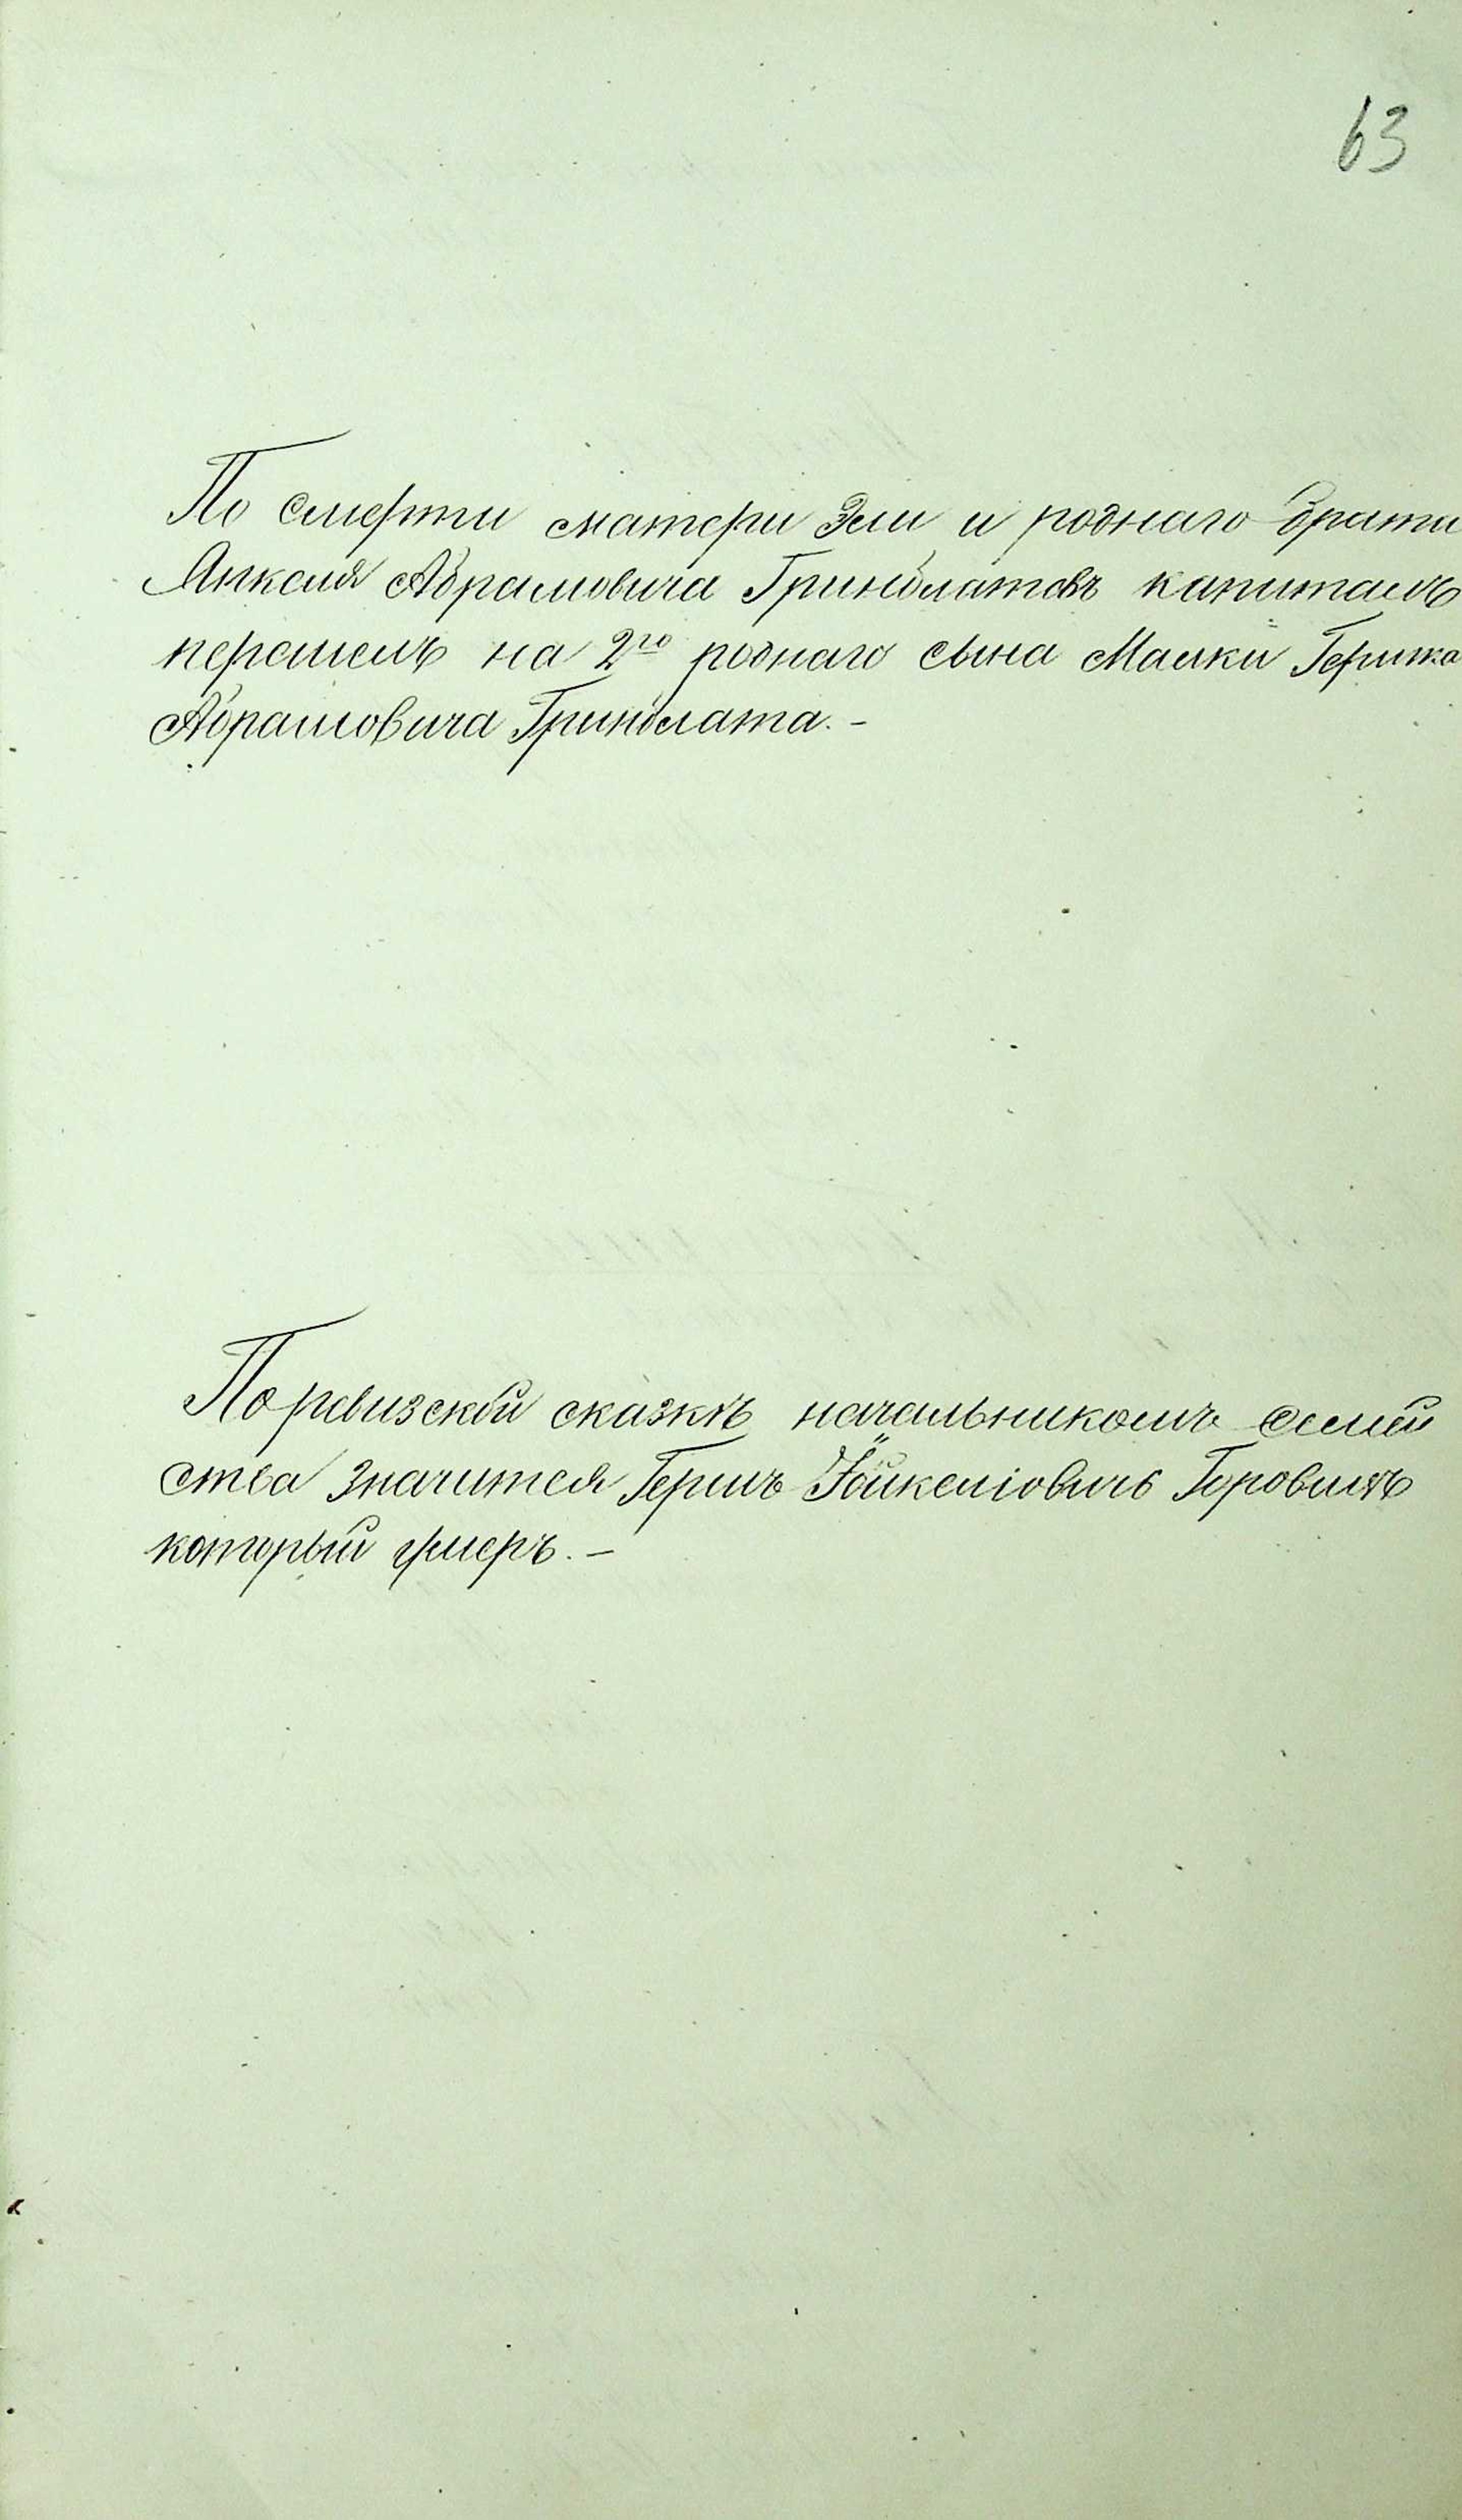 63
По смерти матери Эли и роднаго брата
Янкеля Абрамовича Гринблатовъ капиталъ
перешелъ на 2го роднаго сына Малки Гершка
Абрамовича Гринблата. –
По ревизской сказкѣ начальникомъ семей
ства значится Гершъ Іойкеліовичъ Горовицъ
который умеръ. –